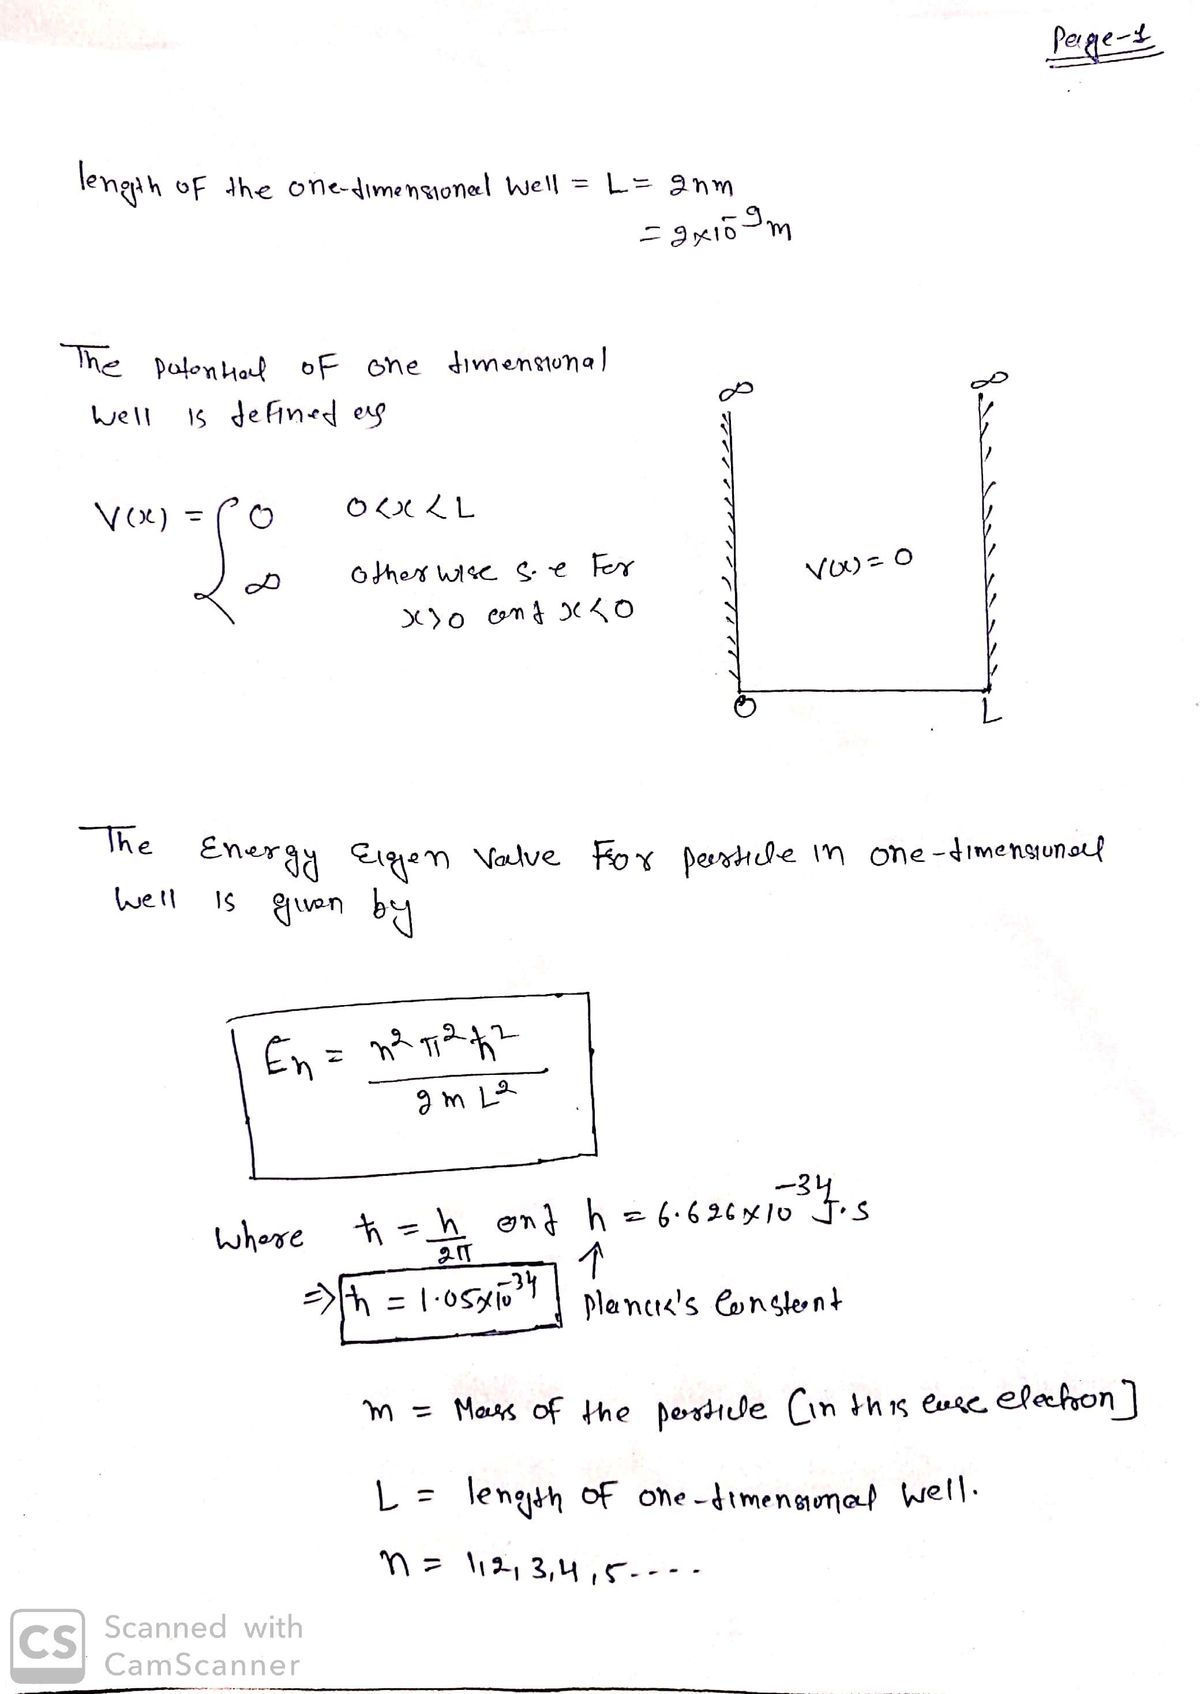 Page-1
length of the one-dimensional well = L = 2nm
= 2×10⁻⁹m
The potential of one dimensional
well is defined as
V(x) = { 0 0<x<L
∞ otherwise i.e for
x>0 and x<0
∞ ∞
V(x) = 0
0 L
The Energy Eigen Value For particle in one-dimensional
well is given by
En = n²π²ħ² / 2mL²
where ħ = h/2π and h = 6.626×10⁻³⁴ J.s
↑
⇒ ħ = 1.05×10⁻³⁴ Planck's Constant
m = Mass of the particle [in this case electron]
L = length of one-dimensional well.
n = 1,2,3,4,5....
CS Scanned with
CamScanner